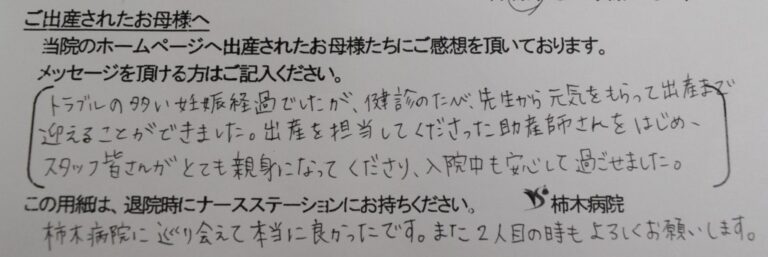 ご出産されたお母様へ
当院のホームページへ出産されたお母様たちにご感想を頂いております。
メッセージを頂ける方はご記入ください。
トラブルの多い妊娠経過でしたが、健診のたび、先生から元気をもらって出産まで
迎えることができました。出産を担当してくださった助産師さんをはじめ、
スタッフ皆さんがとても親身になってくださり、入院中も安心して過ごせました。
この用紙は、退院時にナースステーションにお持ちください。 柿木病院
柿木病院に巡り会えて本当に良かったです。また2人目の時もよろしくお願いします。